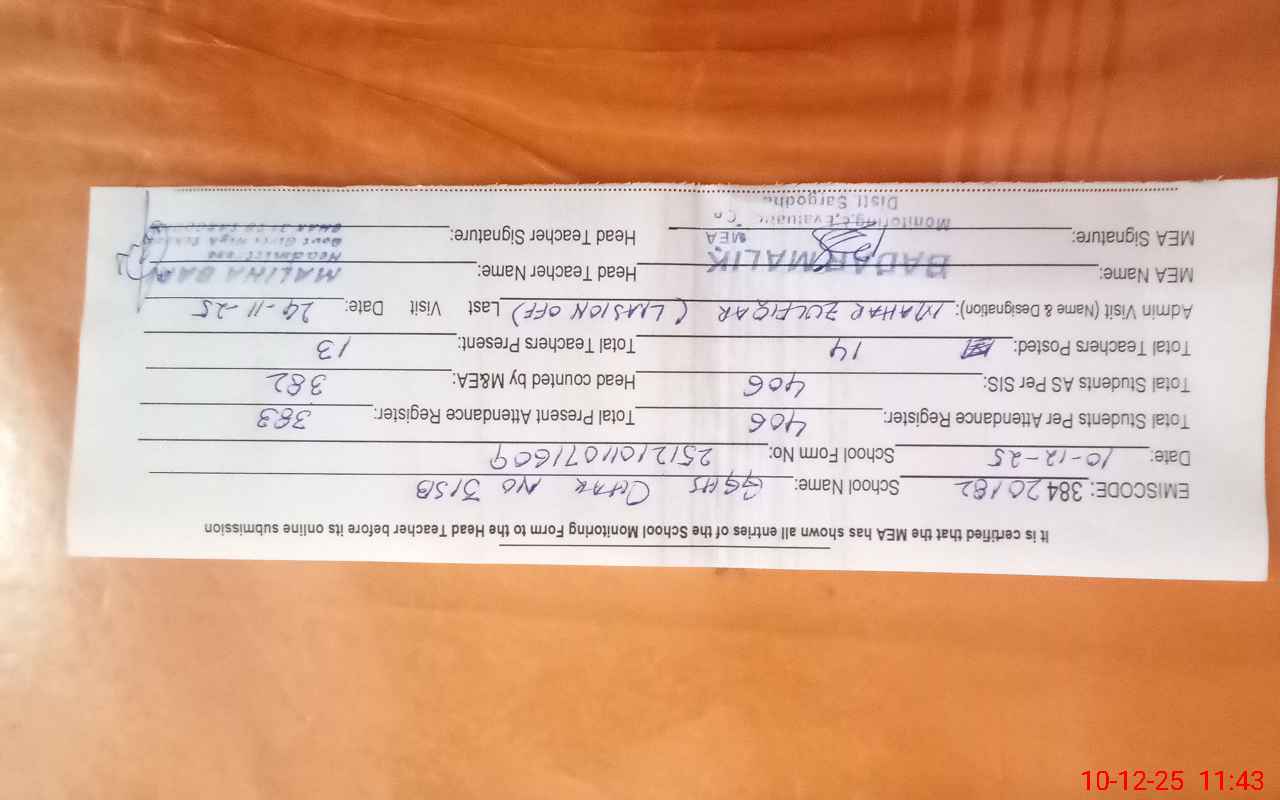 It is certified that the MEA has shown all entries of the School Monitoring Form to the Head Teacher before its online submission
EMISCODE: 38420182 School Name: GGHS CHAK NO 31SB
Date: 10-12-25 School Form No: 25121011071609
Total Students Per Attendance Register: 406 Total Present Attendance Register: 383
Total Students AS Per SIS: 406 Head counted by M&EA: 382
Total Teachers Posted: 14 Total Teachers Present: 13
Admin Visit (Name & Designation): MAHAR ZULFIQAR (LIASION OFF) Last Visit Date: 29-11-25
MEA Name: BADAR MALIK Head Teacher Name: MALIHA
MEA Signature: MEA Head Teacher Signature:
Monitoring
Distt Sargodha
10-12-25 11:43